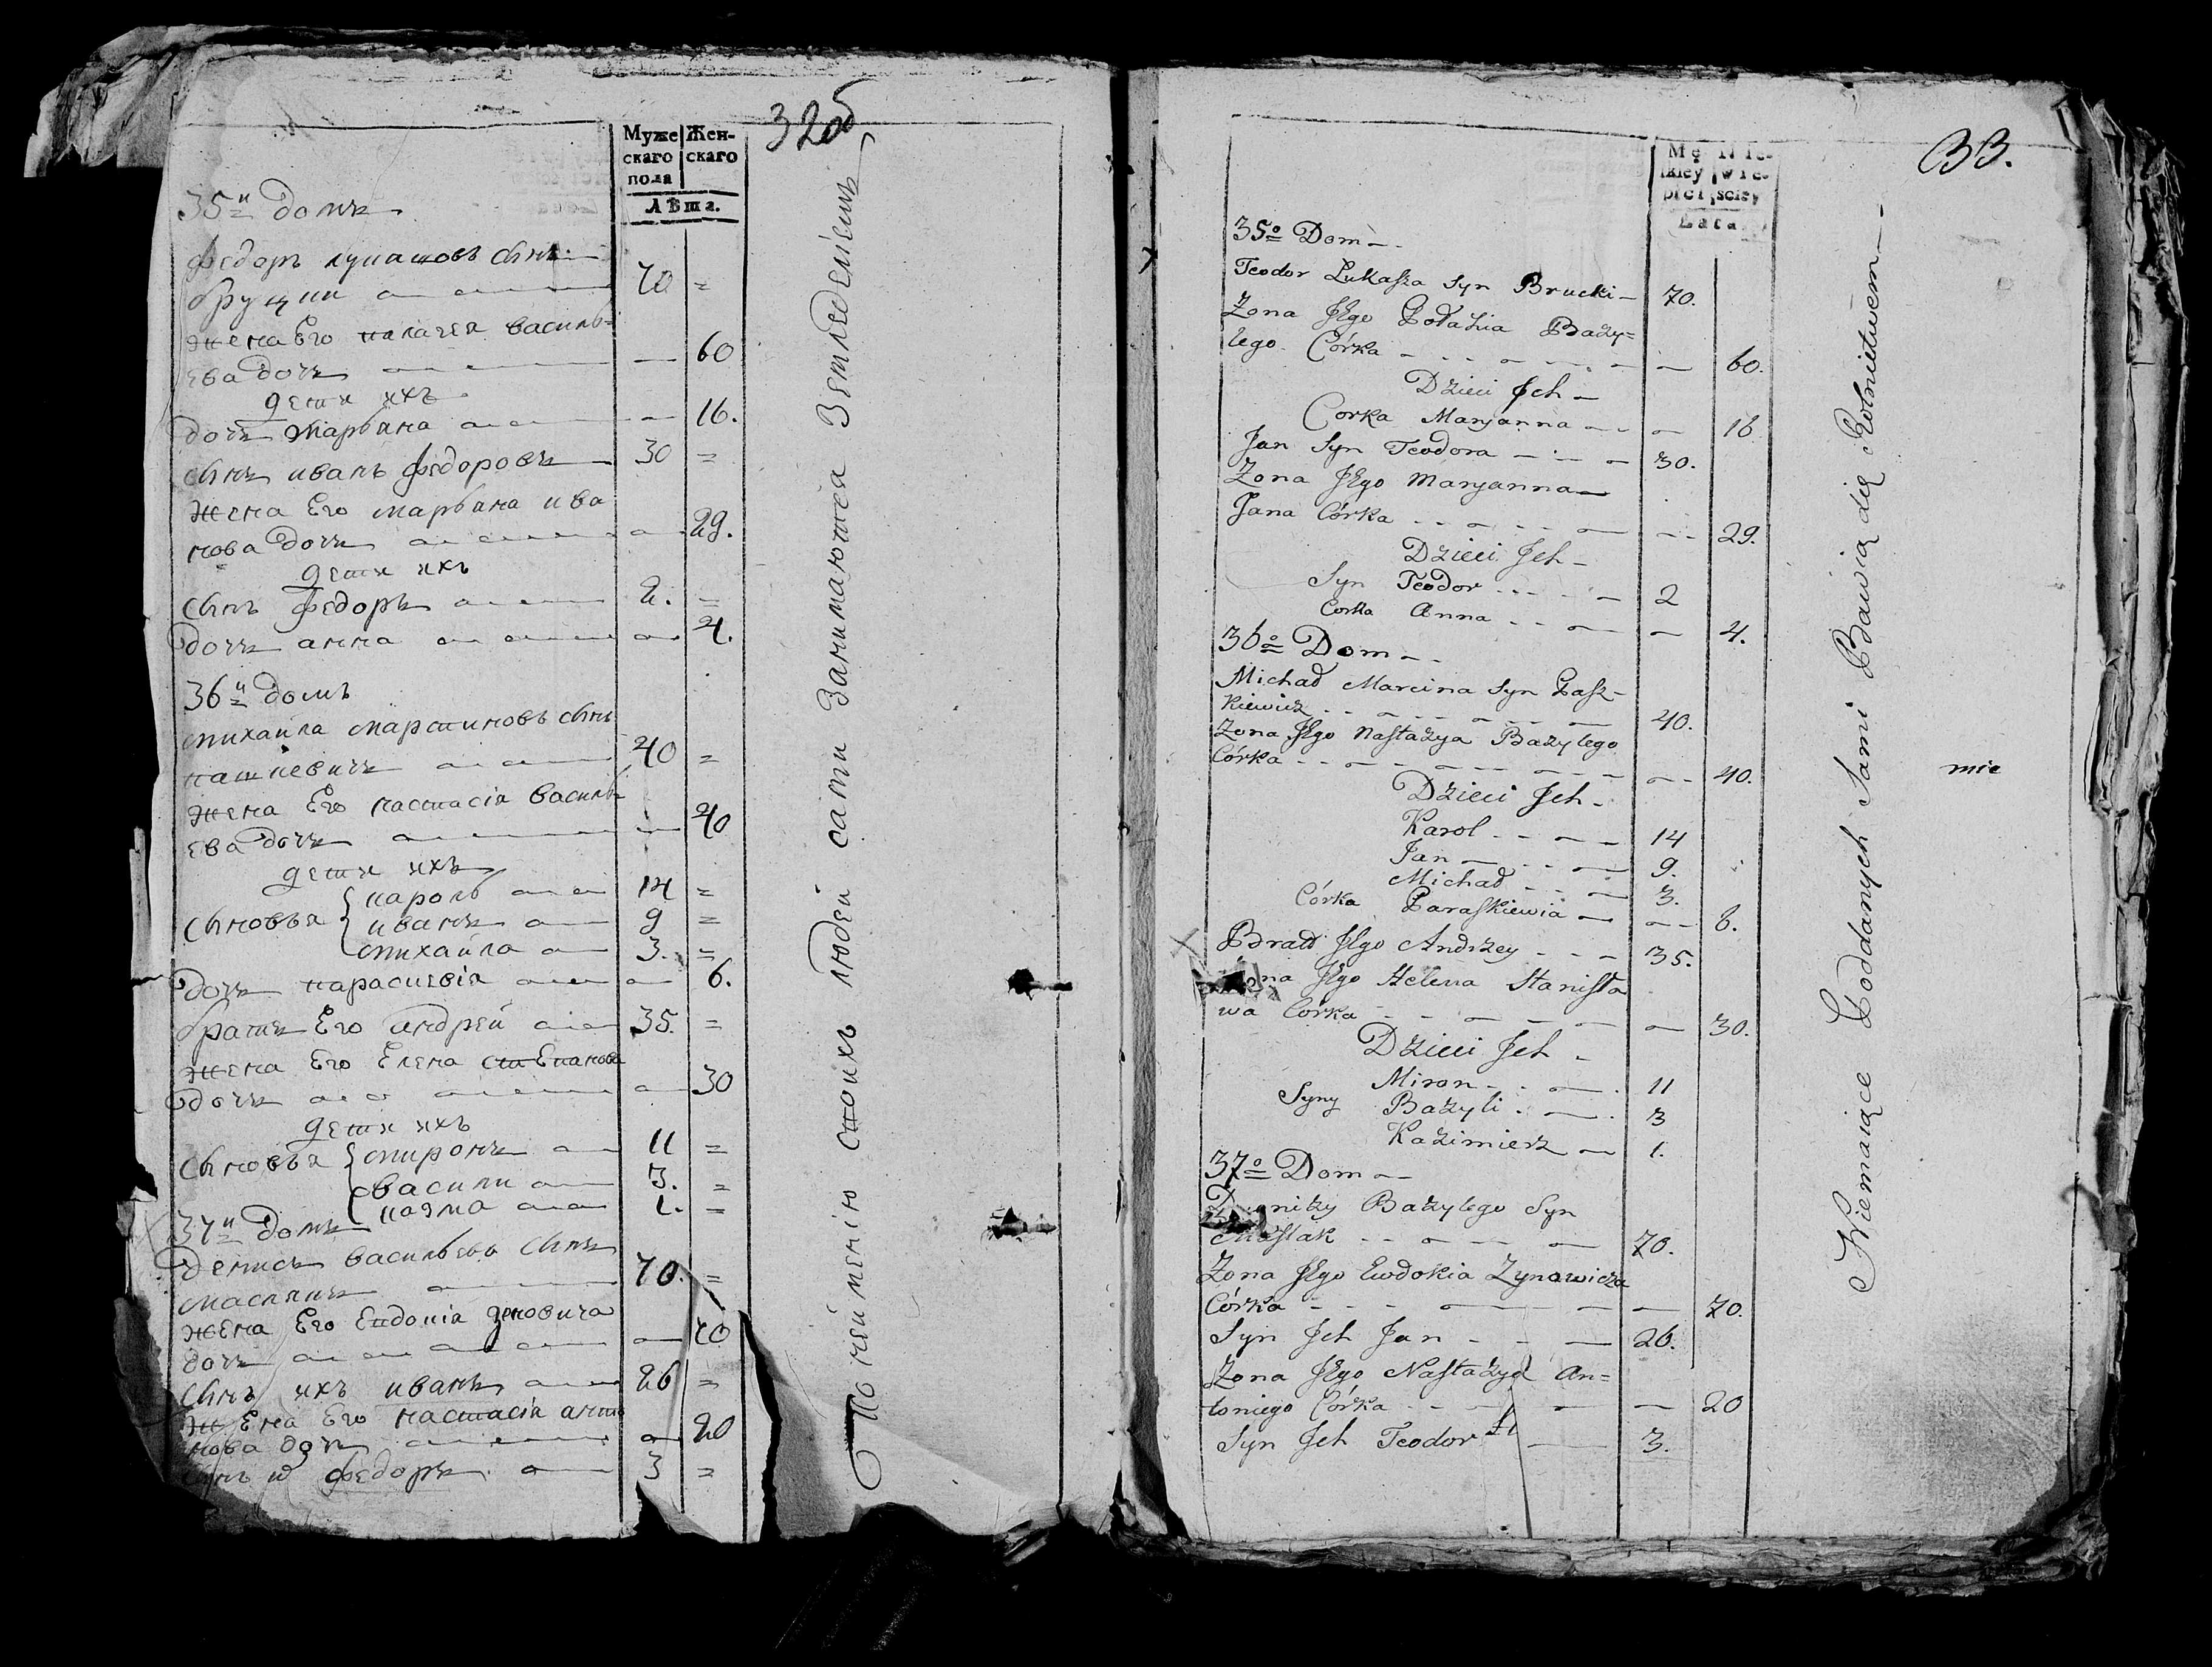 32об
Муже Жен-
скаго скаго
пола
Лѣта.
35й домъ
Федоръ лукашовъ сынъ
бруцки 70 =
жена Его палагея василь-
ева дочь — 60
дети ихъ
дочь марьяна — 16.
сынъ иванъ федоровъ 30 =
жена Его марьяна ива
нова дочь — 29.
дети ихъ
сынъ федоръ 2. =
дочь анна — 4.
36й домъ
михайла мартиновъ сынъ
пашкевичъ 40 =
жена Его настасіа василь-
ева дочь — 40
дети ихъ
сыновья { кароль 14 =
иванъ 9 =
михайла 3. =
дочь параскевіа — 6.
братъ Его андрей 35. =
жена Его Елена степанова
дочь — 30
дети ихъ
сыновья { миронъ 11 =
васили 3. =
казма 1. =
37й домъ
денисъ васильевъ сынъ
маслакъ 70. =
жена Его Евдокіа зеновича
дочь — 70
сынъ ихъ иванъ 26 =
жена Его настасіа анто
нова дочь — 20
сынъ федоръ 3 =
По неименію своихъ людей сами Занимаются Земледеліемъ
33.
Mę Nie-
skiey wie-
płci sciey
Lata
35o Dom —
Teodor Łukasza Syn Brucki — 70.
Zona Jego Połahia Bazy=
lego Córka — 60.
Dzieci Jch —
Corka Maryanna — 16
Jan Syn Teodora — 30.
Zona Jego Maryanna
Jana Córka — 29.
Dzieci Jch —
Syn Teodor — 2
Corka Anna — 4.
36o Dom —
Michał Marcina Syn Pasz-
kiewicz — 40.
Zona Jego Nastazya Bazylego
Córka — 40.
Dzieci Jch —
Karol — 14
Jan — 9.
Michał — 3.
Córka Paraskiewia — 6.
Bratt Jego Andrzey — 35.
Zona Jego Helena Stanisła
wa Córka — 30.
Dzieci Jch —
Miron — 11
Syny Bazyli — 3
Kazimierz — 1.
37o Dom —
Dynnizy Bazylego Syn
Maslak — 70.
Zona Jego Ewdokia Zynowicza
Córka — 70.
Syn Jch Jan — 26.
Zona Jego Nastazya An=
toniego Córka — 20
Syn Jch Teodor — 3.
Niemaiące Poddanych Sami Bawią się Rolnictwem —
mie